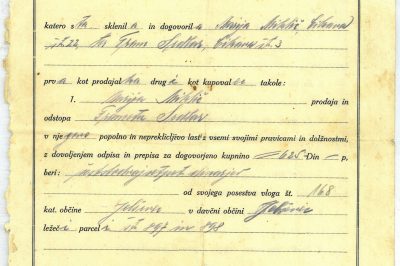 katero sta sklenila in dogovorila Marija Miklič, Cikava
št. 22, in Franc Sedlar, Cikava št. 3
prva kot prodajalka drugi kot kupovalec takole:
1. Marija Miklič prodaja in
odstopa Francetu Sedlar
v njegovo popolno in nepreklicljivo last z vsemi svojimi pravicami in dolžnostmi,
z dovoljenjem odpisa in prepisa za dogovorjeno kupnino 625 Din p,
beri:
od svojega posestva vloga št. 168
kat. občine v davčni občini
ležeči parceli št. 897 in 898